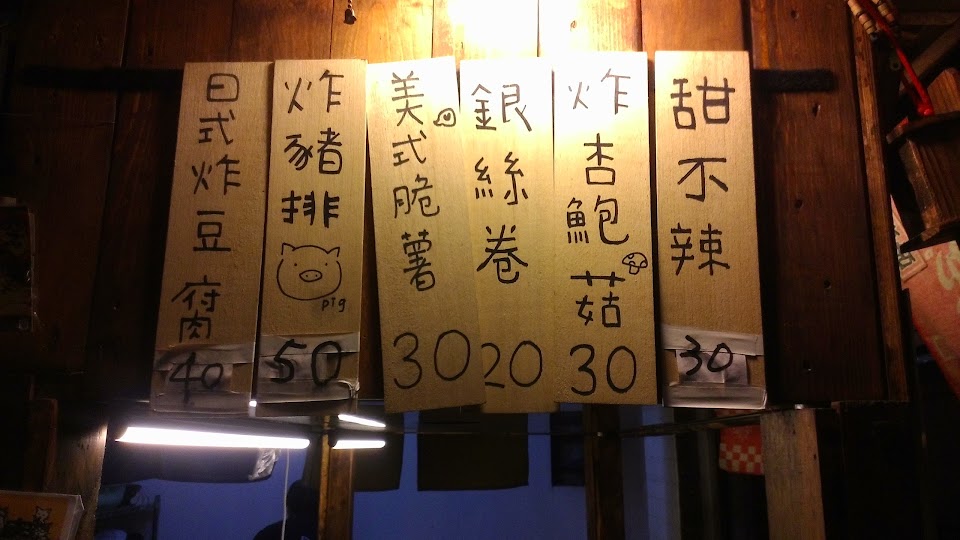 日式炸豆腐 40
炸豬排 pig 50
美式脆薯 30
銀絲卷 20
炸杏鮑菇 30
甜不辣 30